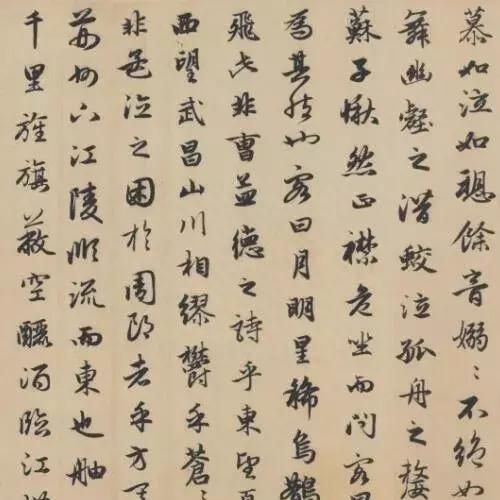 慕如泣如愬餘音嫋〻不絕如
舞幽壑之潛蛟泣孤舟之嫠
蘇子愀然正襟危坐而問客曰
為其然也客曰月明星稀烏鵲
飛此非曹孟德之詩乎東望夏
西望武昌山川相繆鬱乎蒼〻
非孟德之困於周郎者乎方其
荊州下江陵順流而東也舳
千里旌旗蔽空釃酒臨江橫